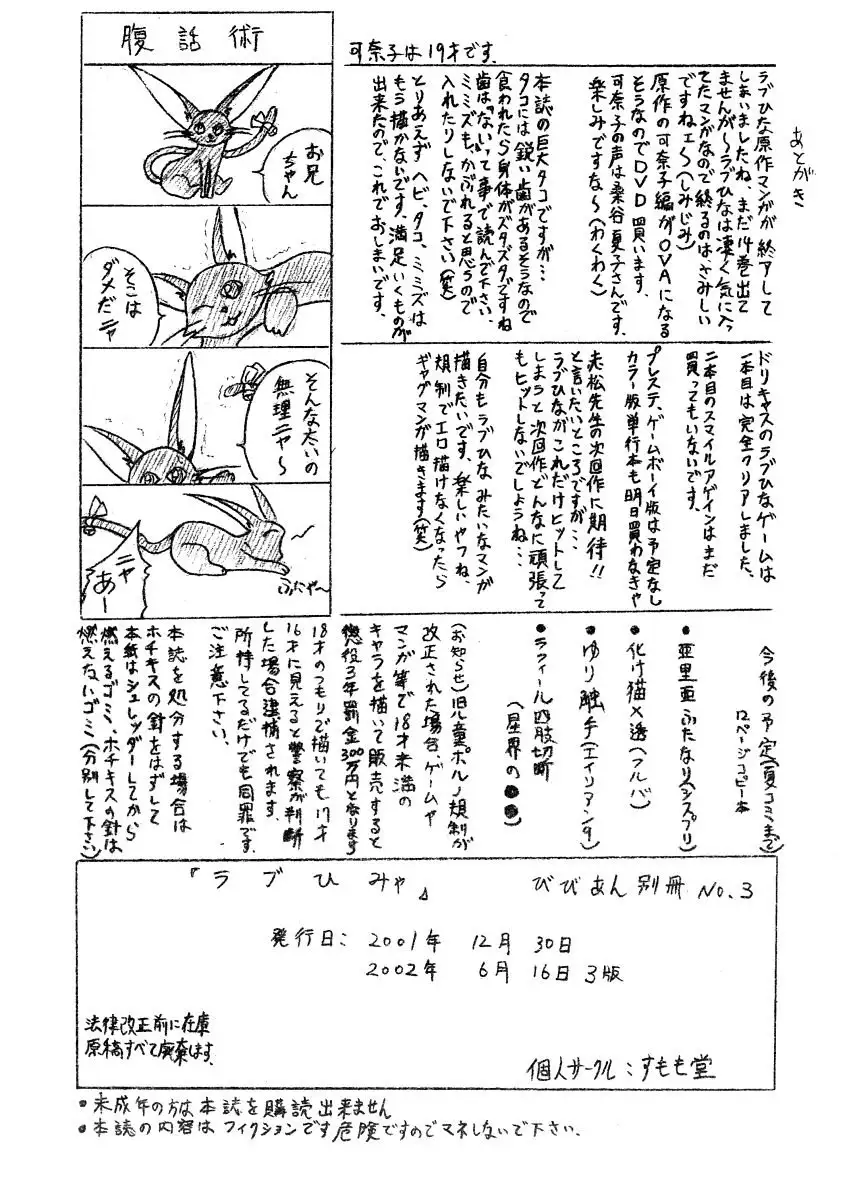 あとがき
ラブひな原作マンガが終アして
しまいましたね、まだ14巻出て
ませんが〜ラブひなは凄く気に入っ
てたマンガなので終るのは、さみしい
ですねェ〜(しみじみ)
原作の可奈子編がOVAになる
そうなのでDVD買います、
可奈子の声は桑谷夏子さんです、
楽しみですな〜(わくわく)
可奈子は19才です.
本誌の巨大タコですが…
タコには鋭い歯があるそうなので
食われたら身体がズタズタですね
歯は「ない」って事で読んで下さい、
ミミズも、かぶれると思うので
入れたりしないで下さい(笑)
とりあえずヘビ、タコ、ミミズは
もう描かないです、満足いくものが
出来たので、これでおしまいです、
腹話術
お兄
ちゃん
そこは
ダメだニャ
そんな太いの
無理ニャ〜
ニャ
あー
ふにゃ〜
ドリキャスのラブひなゲームは
一本目は完全クリアしました、
二本目のスマイルアゲインはまだ
買ってもいないです、
プレステ、ゲームボーイ版は予定なし
カラー版単行本も明日買わなきゃ
赤松先生の次回作に期待!!
と言いたいところですが…
ラブひながこれだけヒットして
しまうと次回作どんなに頑張って
もヒットしないでしょうね…
自分もラブひなみたいなマンガ
描きたいです、楽しいやつね、
規制でエロ描けなくなったら
ギャグマンガ描きます(笑)
今後の予定(夏コミまで)
12ページコピー本
●亜里亜ふたなり(シスプリ)
●化け猫×透(フルバ)
●ゆり触手(エイリアン9)
●ラフィール四肢切断
(星界の●●)
(お知らせ)旧児童ポルノ規制が
改正された場合、ゲームや
マンガ等で18才未満の
キャラを描いて販売すると
懲役3年罰金300万円となります
18才のつもりで描いても17才
16才に見えると警察が判断
した場合逮捕されます、
所持してるだけでも同罪です、
ご注意下さい、
本誌を処分する場合は
ホチキスの針をはずして
本紙はシュレッダーしてから
燃えるゴミ、ホチキスの針は
燃えないゴミ(分別して下さい)
『ラブひみゃ』 びびあん別冊 No.3
発行日: 2001年 12月 30日
2002年 6月 16日 3版
法律改正前に在庫
原稿すべて廃棄します.
個人サークル:すもも堂
●未成年の方は本誌を購読出来ません
●本誌の内容はフィクションです危険ですのでマネしないで下さい.